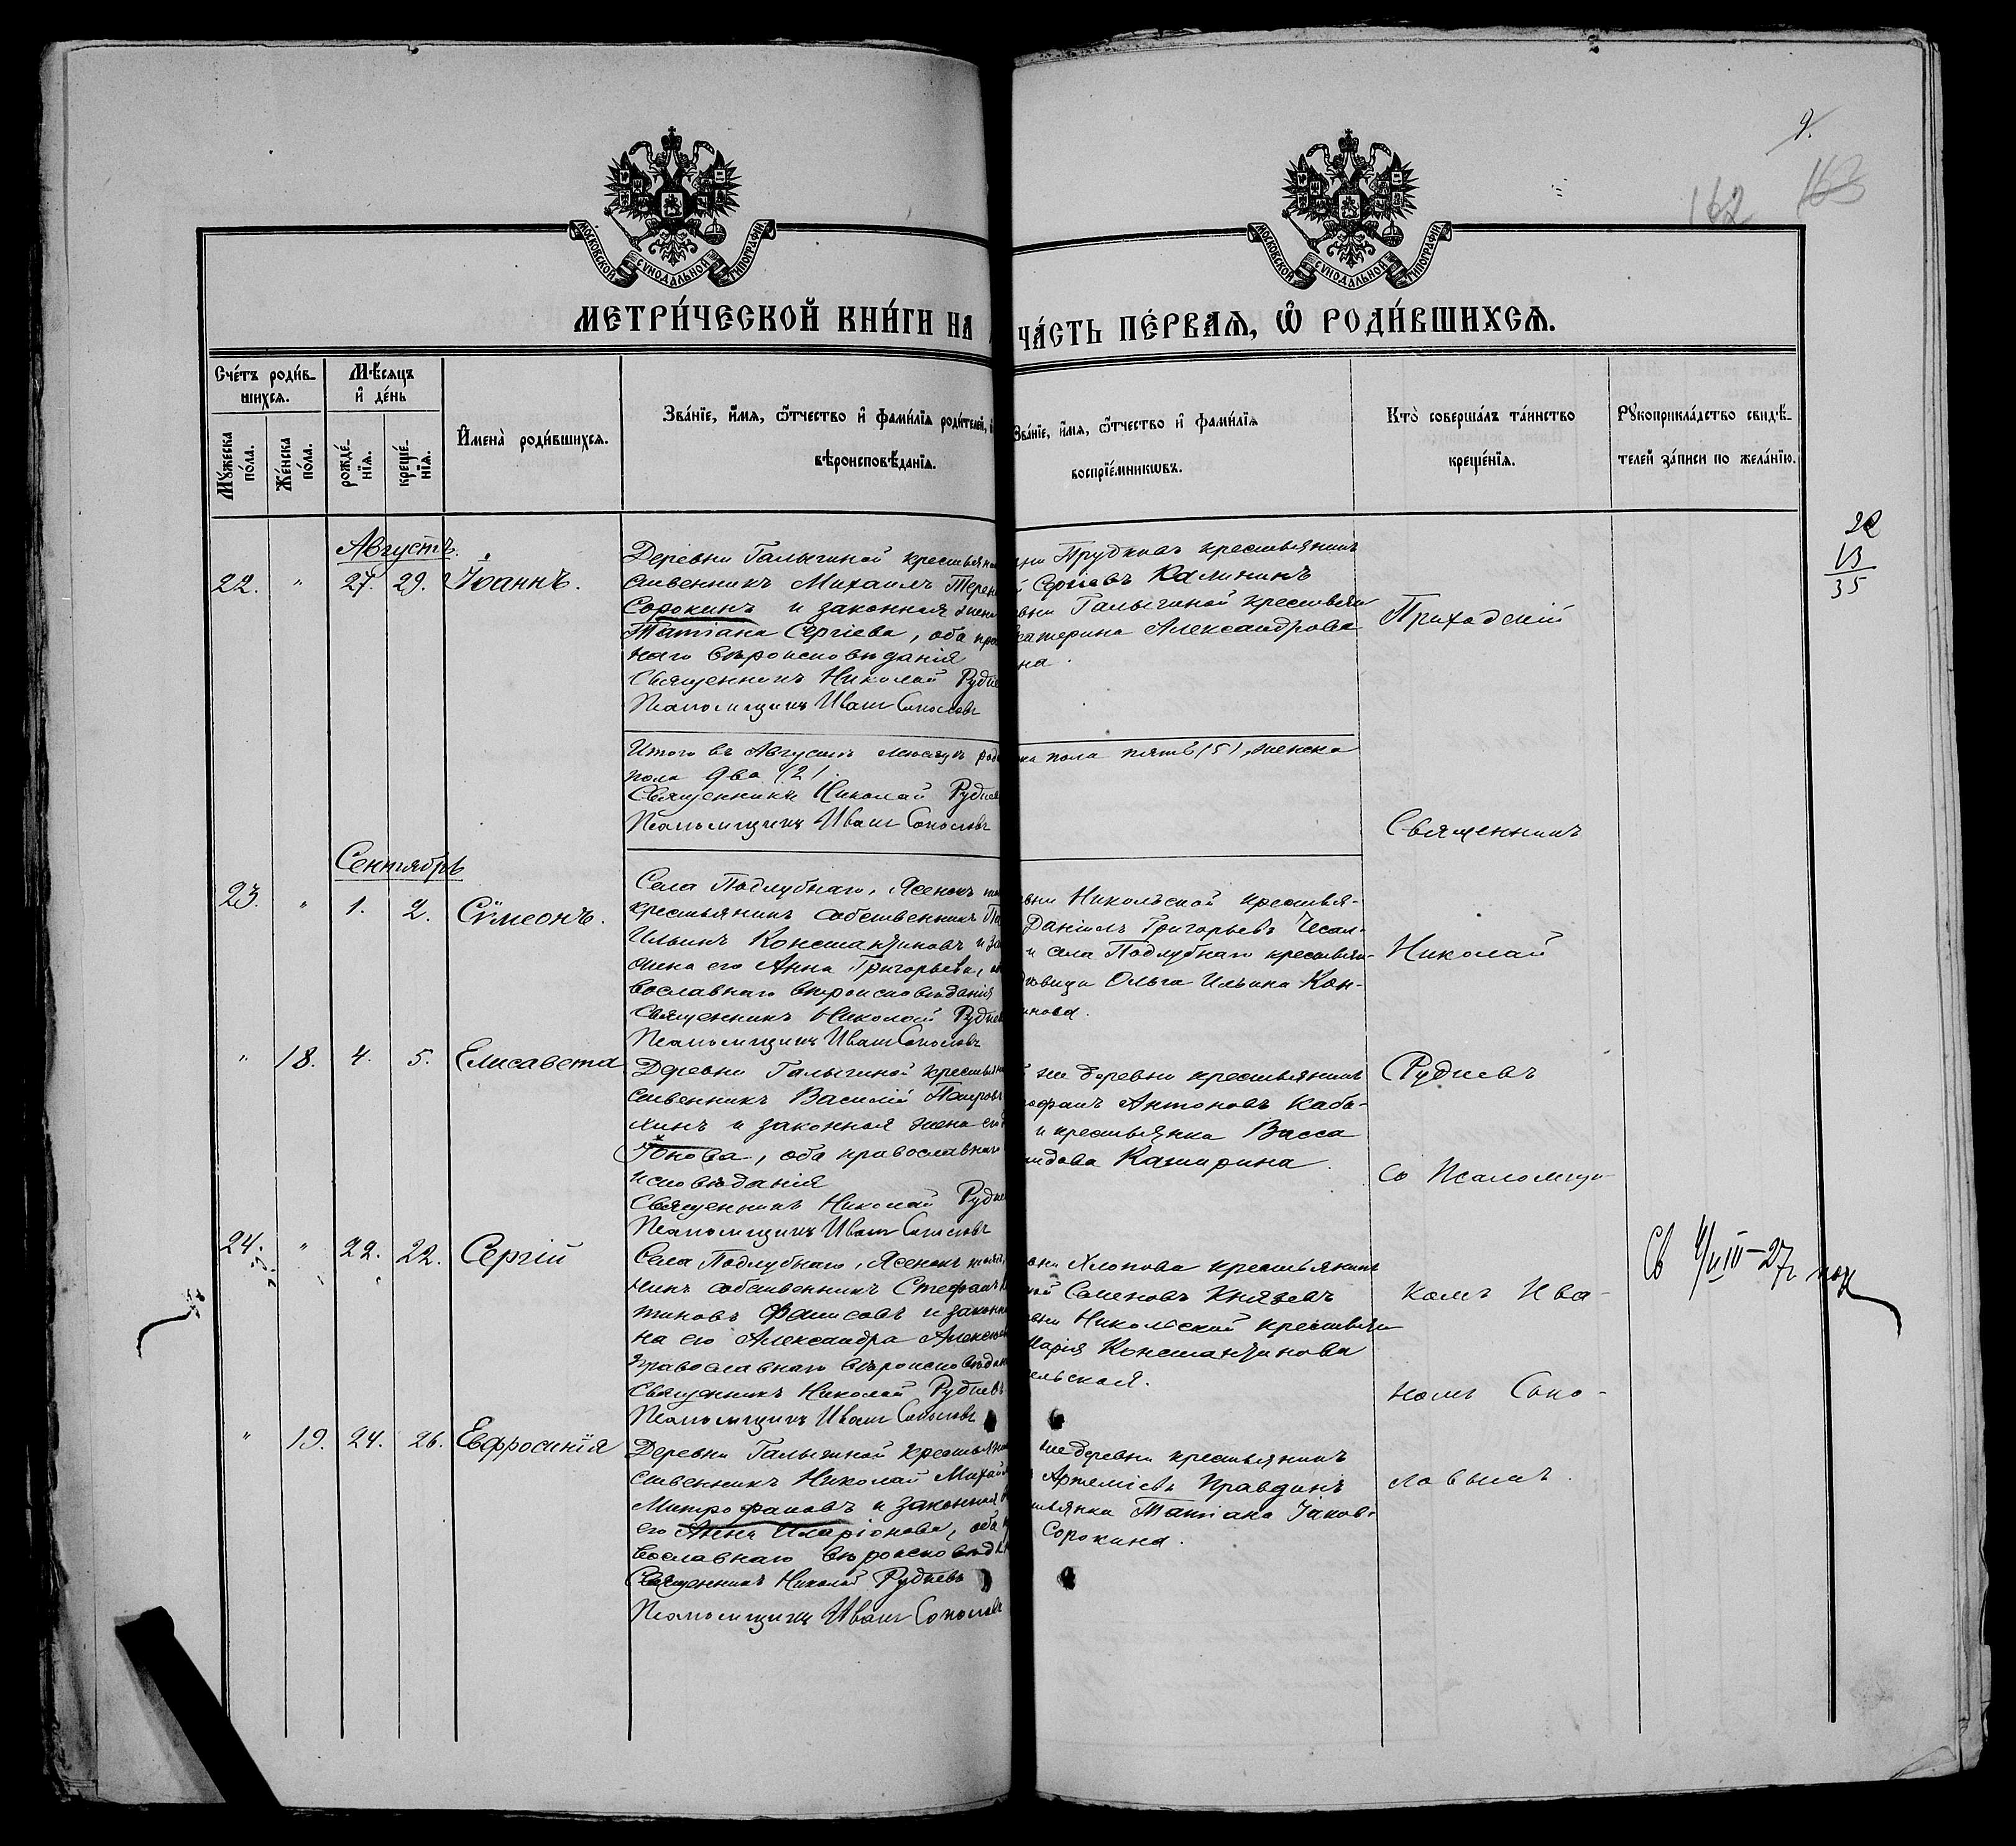 9.
162 163
МОСКОВСКОЙ СѴНОДАЛЬНОЙ ТИПОГРАФІИ
МОСКОВСКОЙ СѴНОДАЛЬНОЙ ТИПОГРАФІИ
МЕТРИ́ЧЕСКОЙ КНИ́ГИ НА
ЧА́СТЬ ПЕ́РВАѦ, Ѽ РОДИ́ВШИХСѦ.
Сче́тъ роди́в-
шихсѧ.
Мѣсѧцъ
и҆ де́нь
Мꙋ́жеска
по́ла.
Же́нска
по́ла.
рожде́-
нїѧ.
креще́-
нїѧ.
И҆мена̀ роди́вшихсѧ.
Зва́нїе, и҆́мѧ, ѻ҆́тчество и҆ фами́лїѧ роди́телей,
вѣроисповѣ́данїѧ.
Зва́нїе, и҆́мѧ, ѻ҆́тчество и҆ фами́лїѧ
воспрїе́мникѡвъ.
Кто̀ соверша́лъ та́инство
креще́нїѧ.
Рꙋкоприкла́дство свидѣ́-
телей за́писи по жела́нїю.
22
13
35
Августъ.
22. " 27. 29. Іоаннъ.
Деревни Галыгиной крестьянинъ
ственникъ Михаилъ Терен
Сорокинъ и законная жена
Татіана Сергіева, оба пра
наго вѣроисповѣданія
Священникъ Николай Рудне
Псаломщикъ Иванъ Соколовъ
Прудковъ крестьянинъ
Сергіевъ Калининъ
вни Галыгиной крестьян
катерина Александрова
на.
Приходскій
Итого въ Августѣ мѣсяцѣ род
пола два (2).
Священникъ Николай Руднев
Псаломщикъ Иванъ Соколовъ
ка пола пять (5), женска
Священникъ
Сентябрь
23. " 1. 2. Сѵмеонъ.
Села Подлубнаго, Ясенокъ
крестьянинъ собственникъ Па
Ильинъ Константиновъ и за
жена его Анна Григорьева,
вославнаго вѣроисповѣданія
Священникъ Николай Руднев
Псаломщикъ Иванъ Соколовъ
вни Никольской крестья-
Даніилъ Григорьевъ
и села Подлубнаго крестьян-
дѣвица Ольга Ильина Кон-
инова.
Николай
" 18. 4. 5. Елисавета
Деревни Галыгиной крестьян
ственникъ Василій Петровъ
хинъ и законная жена его
Іонова, оба православнаго
исповѣданія
Священникъ Николай Рудне
Псаломщикъ Иванъ Соколовъ
же деревни крестьянинъ
рофанъ Антоновъ Каба-
и крестьянка Васса
мидова Каширина.
Рудневъ
со Псаломщи-
24. " 22. 22. Сергій
Села Подлубнаго, Ясенокъ
нинъ собственникъ Стефанъ
тиновъ и законна
на его Александра Алексѣе
православнаго вѣроисповѣдан
Священникъ Николай Рудневъ
Псаломщикъ Иванъ Соколовъ
вни Хлопова крестьянинъ
Семеновъ Князевъ
вни Никольской крестьян
Марія Константинова
ельская.
комъ Ива-
номъ Соко-
" 19. 24. 26. Евфросинія
Деревни Галыгиной крестьян
ственникъ Николай Михай
Митрофановъ и законная
его Анна Иларіонова, оба
вославнаго вѣроисповѣда
Священникъ Николай Рудневъ
Псаломщикъ Иванъ Соколовъ
же деревни крестьянинъ
Артеміевъ Правдинъ
тьянка Татіана Іаков-
Сорокина.
ловымъ.